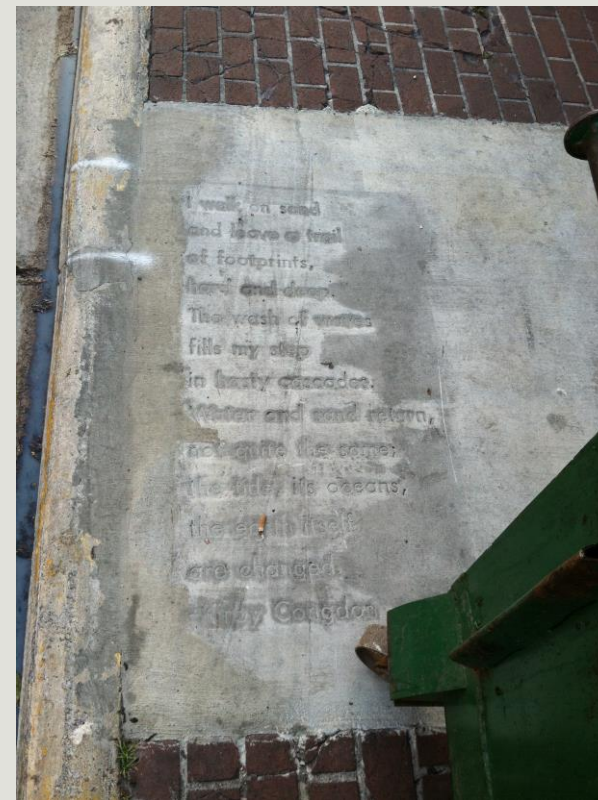 I walk on sand
and leave a trail
of footprints,
hard and deep.
The wash of waves
fills my step
in hasty cascades.
Water and sand return,
not quite the same;
the tide, its oceans,
the earth itself
are changed.
-Kirby Congdon